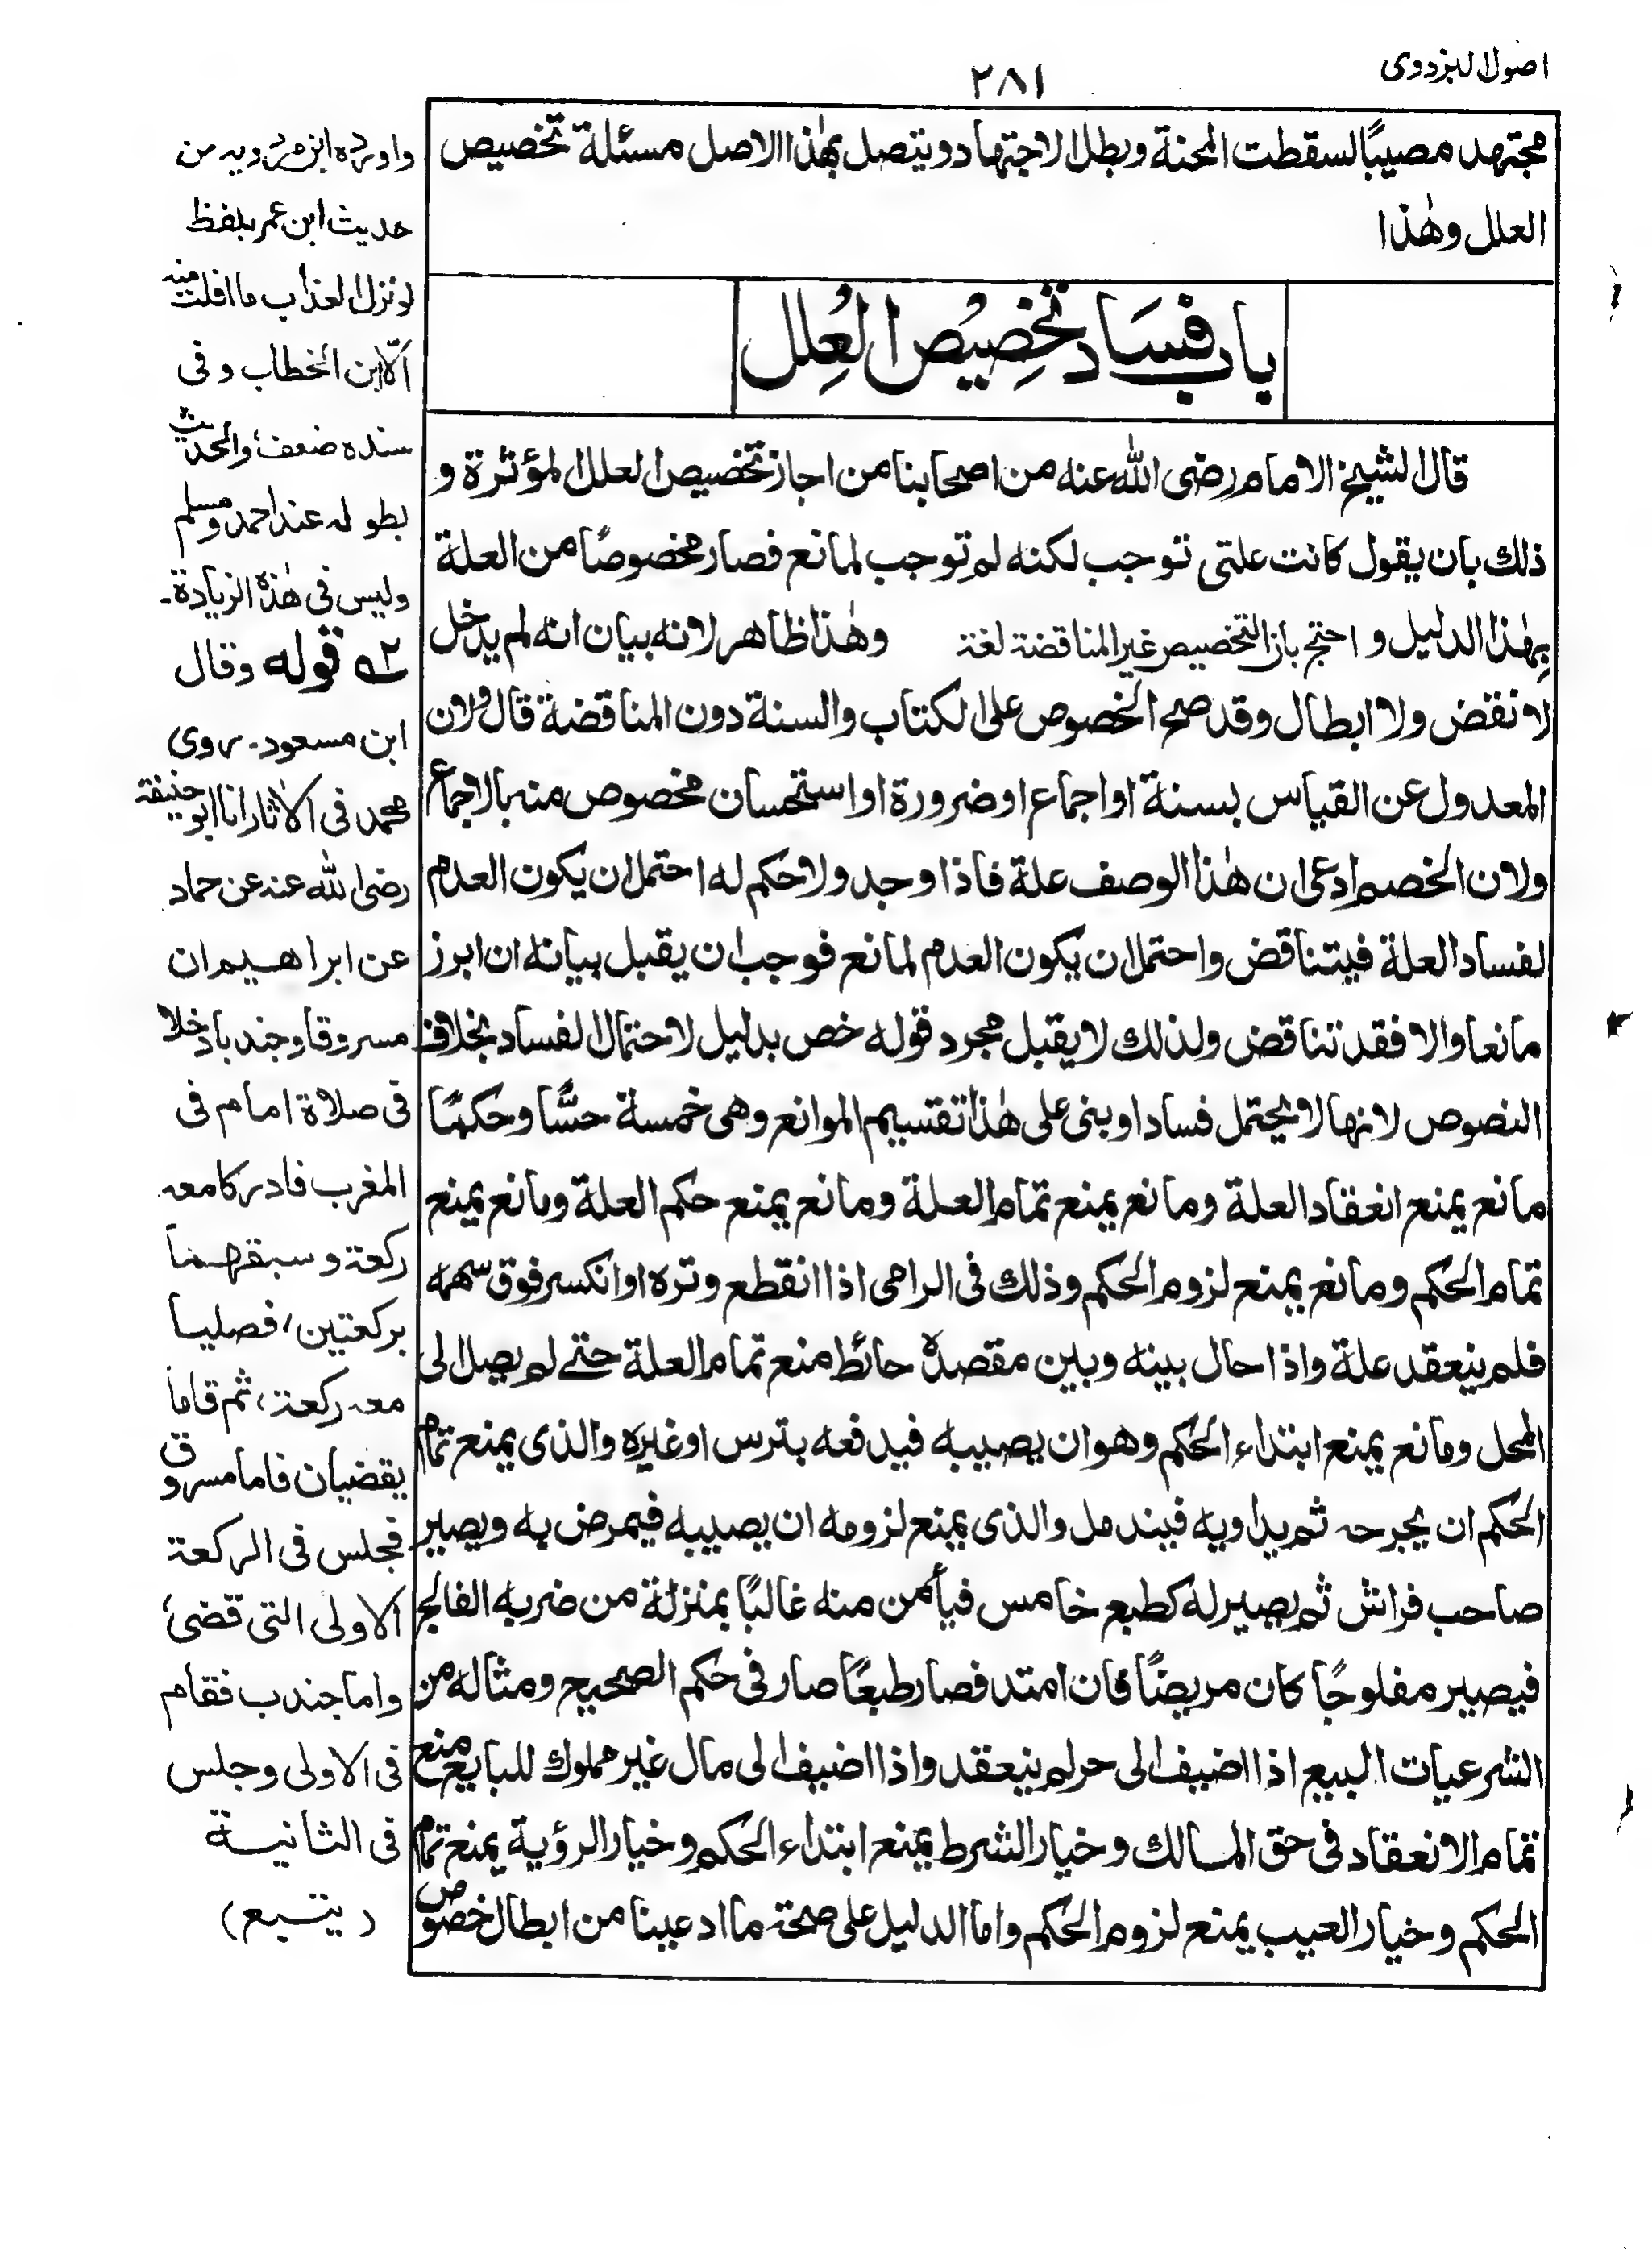 اصول البزدوی
٢٨١
مجتهد مصيبًا لسقطت المحنة وبطل الاجتهاد ويتصل بهٰذا الاصل مسئلة تخصيص
العلل وهٰذا
باب فسَاد تخصِيُص العِلل
قال الشيخ الامام رضى الله عنه من اصحابنا من اجاز تخصيص العلل المؤثرة و
ذلك بان يقول كانت علتى توجب لكنه لم توجب لمانع فصار مخصوصًا من العلة
بهٰذا الدليل و احتج بان التخصيص غير المناقضة لغة وهٰذا ظاهر لانه بيان انه لم يدخل
لا نقض ولا ابطال وقد صح الخصوص على الكتاب والسنة دون المناقضة قال ولان
المعدول عن القياس بسنة او اجماع او ضرورة او استحسان مخصوص منه بالاجماع
ولان الخصم ادعى ان هٰذا الوصف علة فاذا وجد ولا حكم له احتمل ان يكون العدم
لفساد العلة فيتناقض واحتمل ان يكون العدم لمانع فوجب ان يقبل بيانه ان ابرز
مانعا والا فقد تناقض ولذلك لا يقبل مجرد قوله خص بدليل لاحتمال الفساد بخلاف
النصوص لانها لا يحتمل فسادا وبنى على هٰذا تقسيم الموانع وهى خمسة حسًّا وحكمًا
مانع يمنع انعقاد العلة ومانع يمنع تمام العلة ومانع يمنع حكم العلة ومانع يمنع
تمام الحكم ومانع يمنع لزوم الحكم وذلك فى الرامى اذا انقطع وتره او انكسر فوق سهمه
فلم ينعقد علة واذا حال بينه وبين مقصده حائط منع تمام العلة حتى لم يصل الى
المحل ومانع يمنع ابتداء الحكم وهو ان يصيبه فيدفعه بترس او غيره والذى يمنع تمام
الحكم ان يجرحه ثم يداويه فيندمل والذى يمنع لزومه ان يصيبه فيمرض به ويصير
صاحب فراش ثم يصير له كطبع خامس فيأمن منه غالبًا بمنزلة من ضربه الفالج
فيصير مفلوجًا كان مريضًا فان امتد فصار طبعًا صار فى حكم الصحيح ومثاله من
الشرعيات البيع اذا اضيف الى حر لم ينعقد واذا اضيف الى مال غير مملوك للبايع منع
تمام الانعقاد فى حق المالك وخيار الشرط يمنع ابتداء الحكم وخيار الرؤية يمنع تمام
الحكم وخيار العيب يمنع لزوم الحكم واما الدليل على صحة ما ادعينا من ابطال خصوص
واورده ابن مردويه من
حديث ابن عمر بلفظ
لو نزل العذاب ما افلت منه
الّا ابن الخطاب وفى
سنده ضعف والحديث
بطوله عند احمد ومسلم
وليس فى هٰذه الزيادة۔
٢ قوله وقال
ابن مسعود۔ روى
محمد فى الاٰثار انا ابو حنيفة
رضى الله عنه عن حماد
عن ابراهيم ان
مسروقا وجندبا دخلا
فى صلاة امام فى
المغرب فادركا معه
ركعة وسبقهما
بركعتين، فصليا
معه ركعة، ثم قاما
يقضيان فاما مسروق
فجلس فى الركعة
الاولى التى قضىٰ
واما جندب فقام
فى الاولى وجلس
فى الثانية
(يتبع)